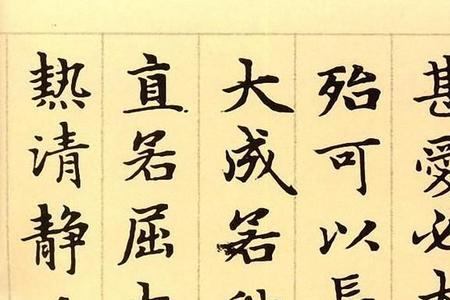 甚愛必大
殆可以長
大成若
直若屈
熱清靜